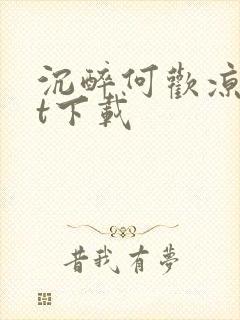 沉醉何歡涼
t下載
昔我有夢